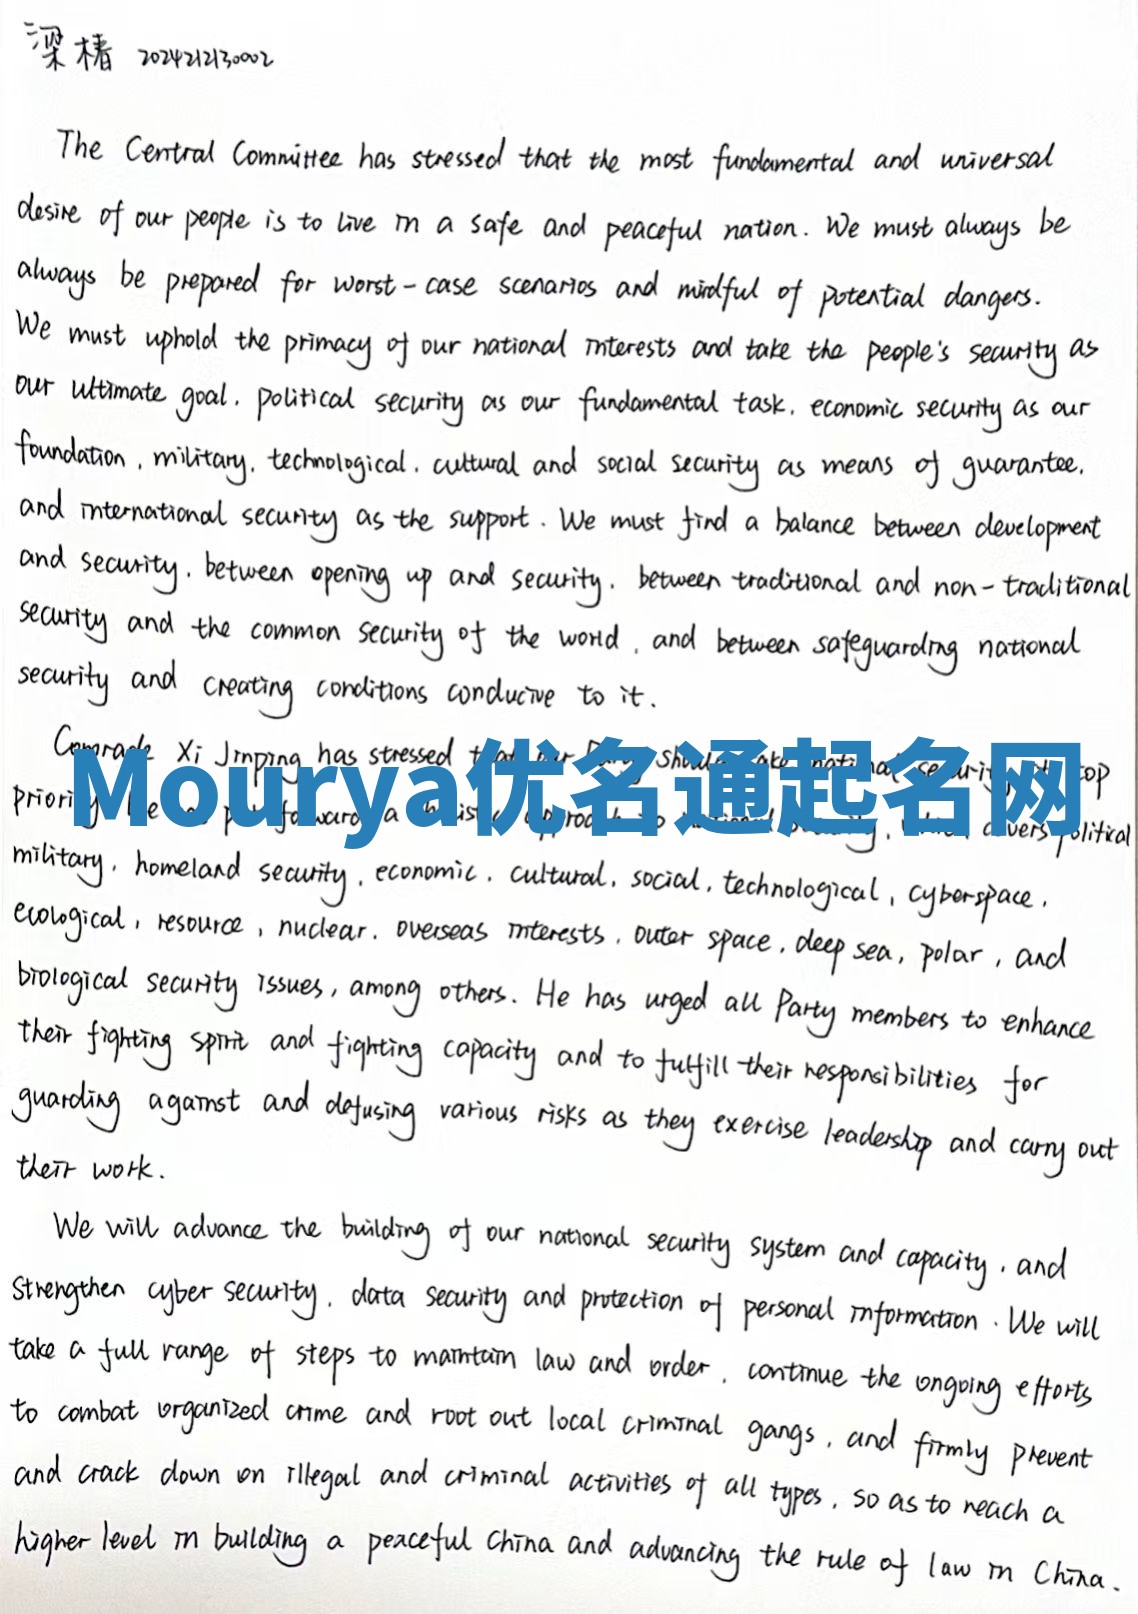 梁椿 2024212130002
The Central Committee has stressed that the most fundamental and universal
desire of our people is to live in a safe and peaceful nation. We must always be
always be prepared for worst-case scenarios and mindful of potential dangers.
We must uphold the primacy of our national interests and take the people's security as
our ultimate goal, political security as our fundamental task, economic security as our
foundation, military, technological, cultural and social security as means of guarantee,
and international security as the support. We must find a balance between development
and security, between opening up and security, between traditional and non-traditional
security and the common security of the world, and between safeguarding national
security and creating conditions conducive to it.
Comrade Xi Jinping has stressed that our Party should take national security top
Mourya优名通起名网
priority. put forward a holistic approach to national security, which covers political
military, homeland security, economic, cultural, social, technological, cyberspace,
ecological, resource, nuclear, overseas interests, outer space, deep sea, polar, and
biological security issues, among others. He has urged all Party members to enhance
their fighting spirit and fighting capacity and to fulfill their responsibilities for
guarding against and defusing various risks as they exercise leadership and carry out
their work.
We will advance the building of our national security system and capacity, and
strengthen cyber security, data security and protection of personal information. We will
take a full range of steps to maintain law and order, continue the ongoing efforts
to combat organized crime and root out local criminal gangs, and firmly prevent
and crack down on illegal and criminal activities of all types, so as to reach a
higher level in building a peaceful China and advancing the rule of law in China.